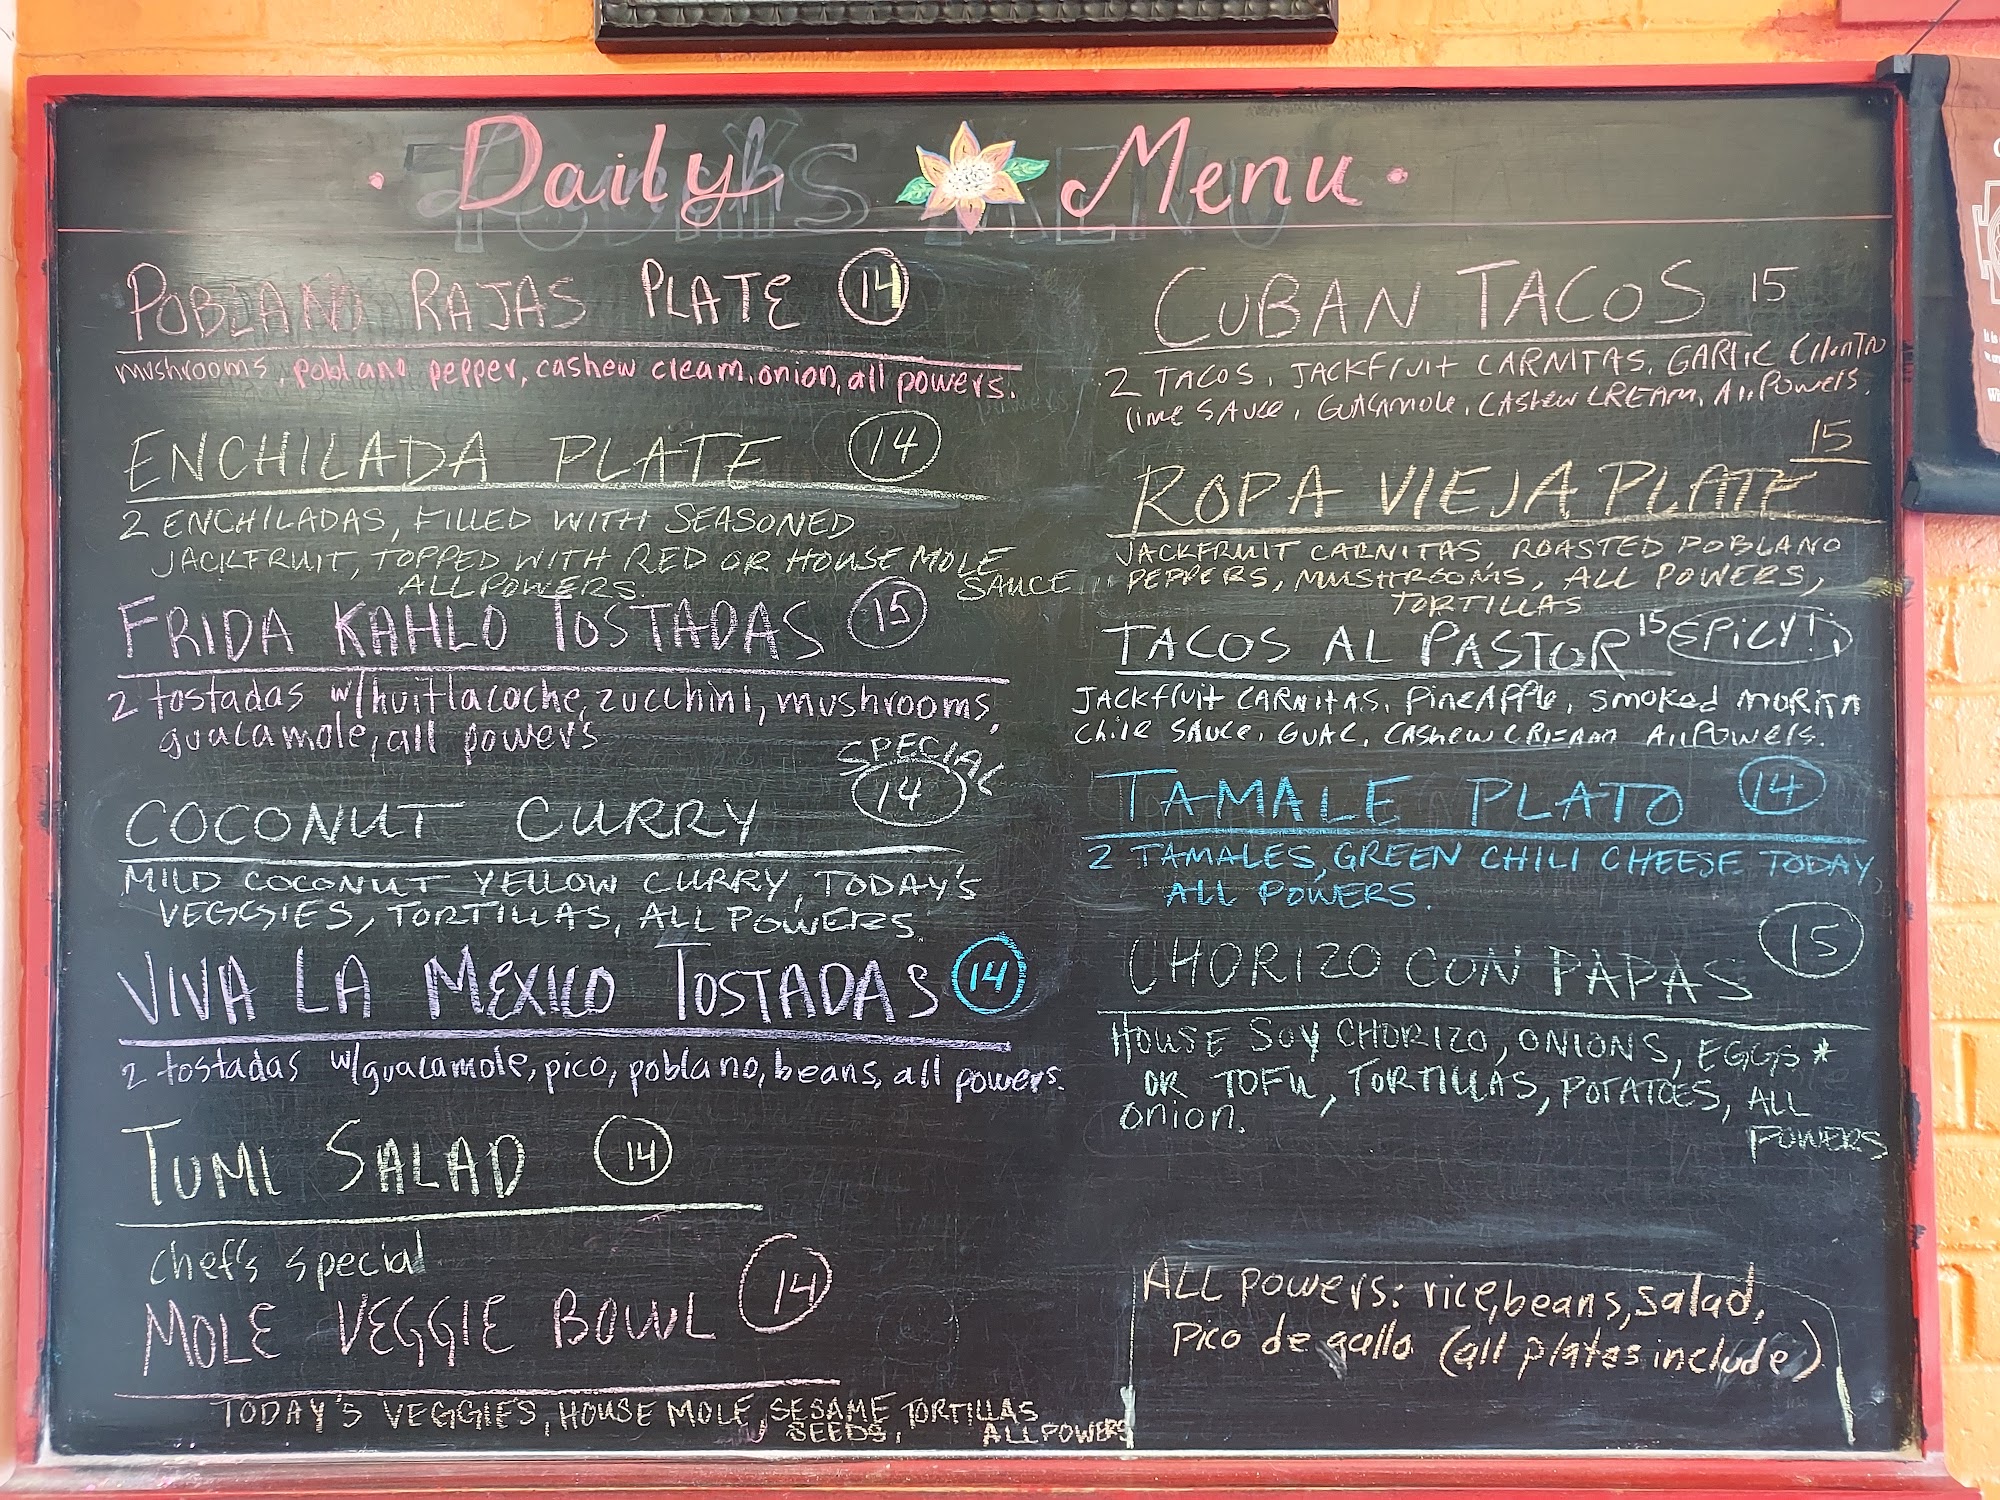 Daily Menu
POBLANO RAJAS PLATE 14
mushrooms, poblano pepper, cashew cream, onion, all powers.
ENCHILADA PLATE 14
2 ENCHILADAS, FILLED WITH SEASONED
JACKFRUIT, TOPPED WITH RED OR HOUSE MOLE
SAUCE
ALL POWERS.
FRIDA KAHLO TOSTADAS 15
2 tostadas w/huitlacoche, zucchini, mushrooms,
guacamole, all powers
SPECIAL
COCONUT CURRY 14
MILD COCONUT YELLOW CURRY, TODAY'S
VEGGIES, TORTILLAS, ALL POWERS.
VIVA LA MEXICO TOSTADAS 14
2 tostadas w/guacamole, pico, poblano, beans, all powers.
TUMI SALAD 14
chef's special
MOLE VEGGIE BOWL 14
TODAY'S VEGGIES, HOUSE MOLE, SESAME TORTILLAS
SEEDS, ALL POWERS
CUBAN TACOS 15
2 TACOS, JACKFRUIT CARNITAS, GARLIC CILANTRO
lime SAUCE, GUACAMOLE, CASHEW CREAM, All Powers.
15
ROPA VIEJA PLATE
JACKFRUIT CARNITAS, ROASTED POBLANO
PEPPERS, MUSHROOMS, ALL POWERS,
TORTILLAS
TACOS AL PASTOR 15 SPICY!
JACKFRUIT CARNITAS, PINEAPPLE, SMOKED MORITA
Chile SAUCE, GUAC, CASHEW CREAM All Powers.
TAMALE PLATO 14
2 TAMALES, GREEN CHILI CHEESE TODAY,
ALL POWERS.
CHORIZO CON PAPAS 15
HOUSE SOY CHORIZO, ONIONS, EGGS*
OR TOFU, TORTILLAS, POTATOES, ALL
onion. POWERS
ALL POWERS: rice, beans, salad,
Pico de gallo (all plates include)